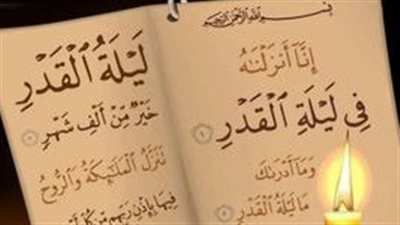 بِسْمِ اللَّهِ الرَّحْمَٰنِ الرَّحِيمِ
إِنَّآ أَنزَلْنَٰهُ
فِى لَيْلَةِ ٱلْقَدْرِ ١
وَمَآ أَدْرَىٰكَ
مَا لَيْلَةُ ٱلْقَدْرِ ٢
لَيْلَةُ ٱلْقَدْرِ
خَيْرٌ مِّنْ أَلْفِ شَهْرٍ ٣
تَنَزَّلُ ٱلْمَلَٰٓئِكَةُ وَٱلرُّوحُ
فِيهَا بِإِذْنِ رَبِّهِم مِّن كُلِّ